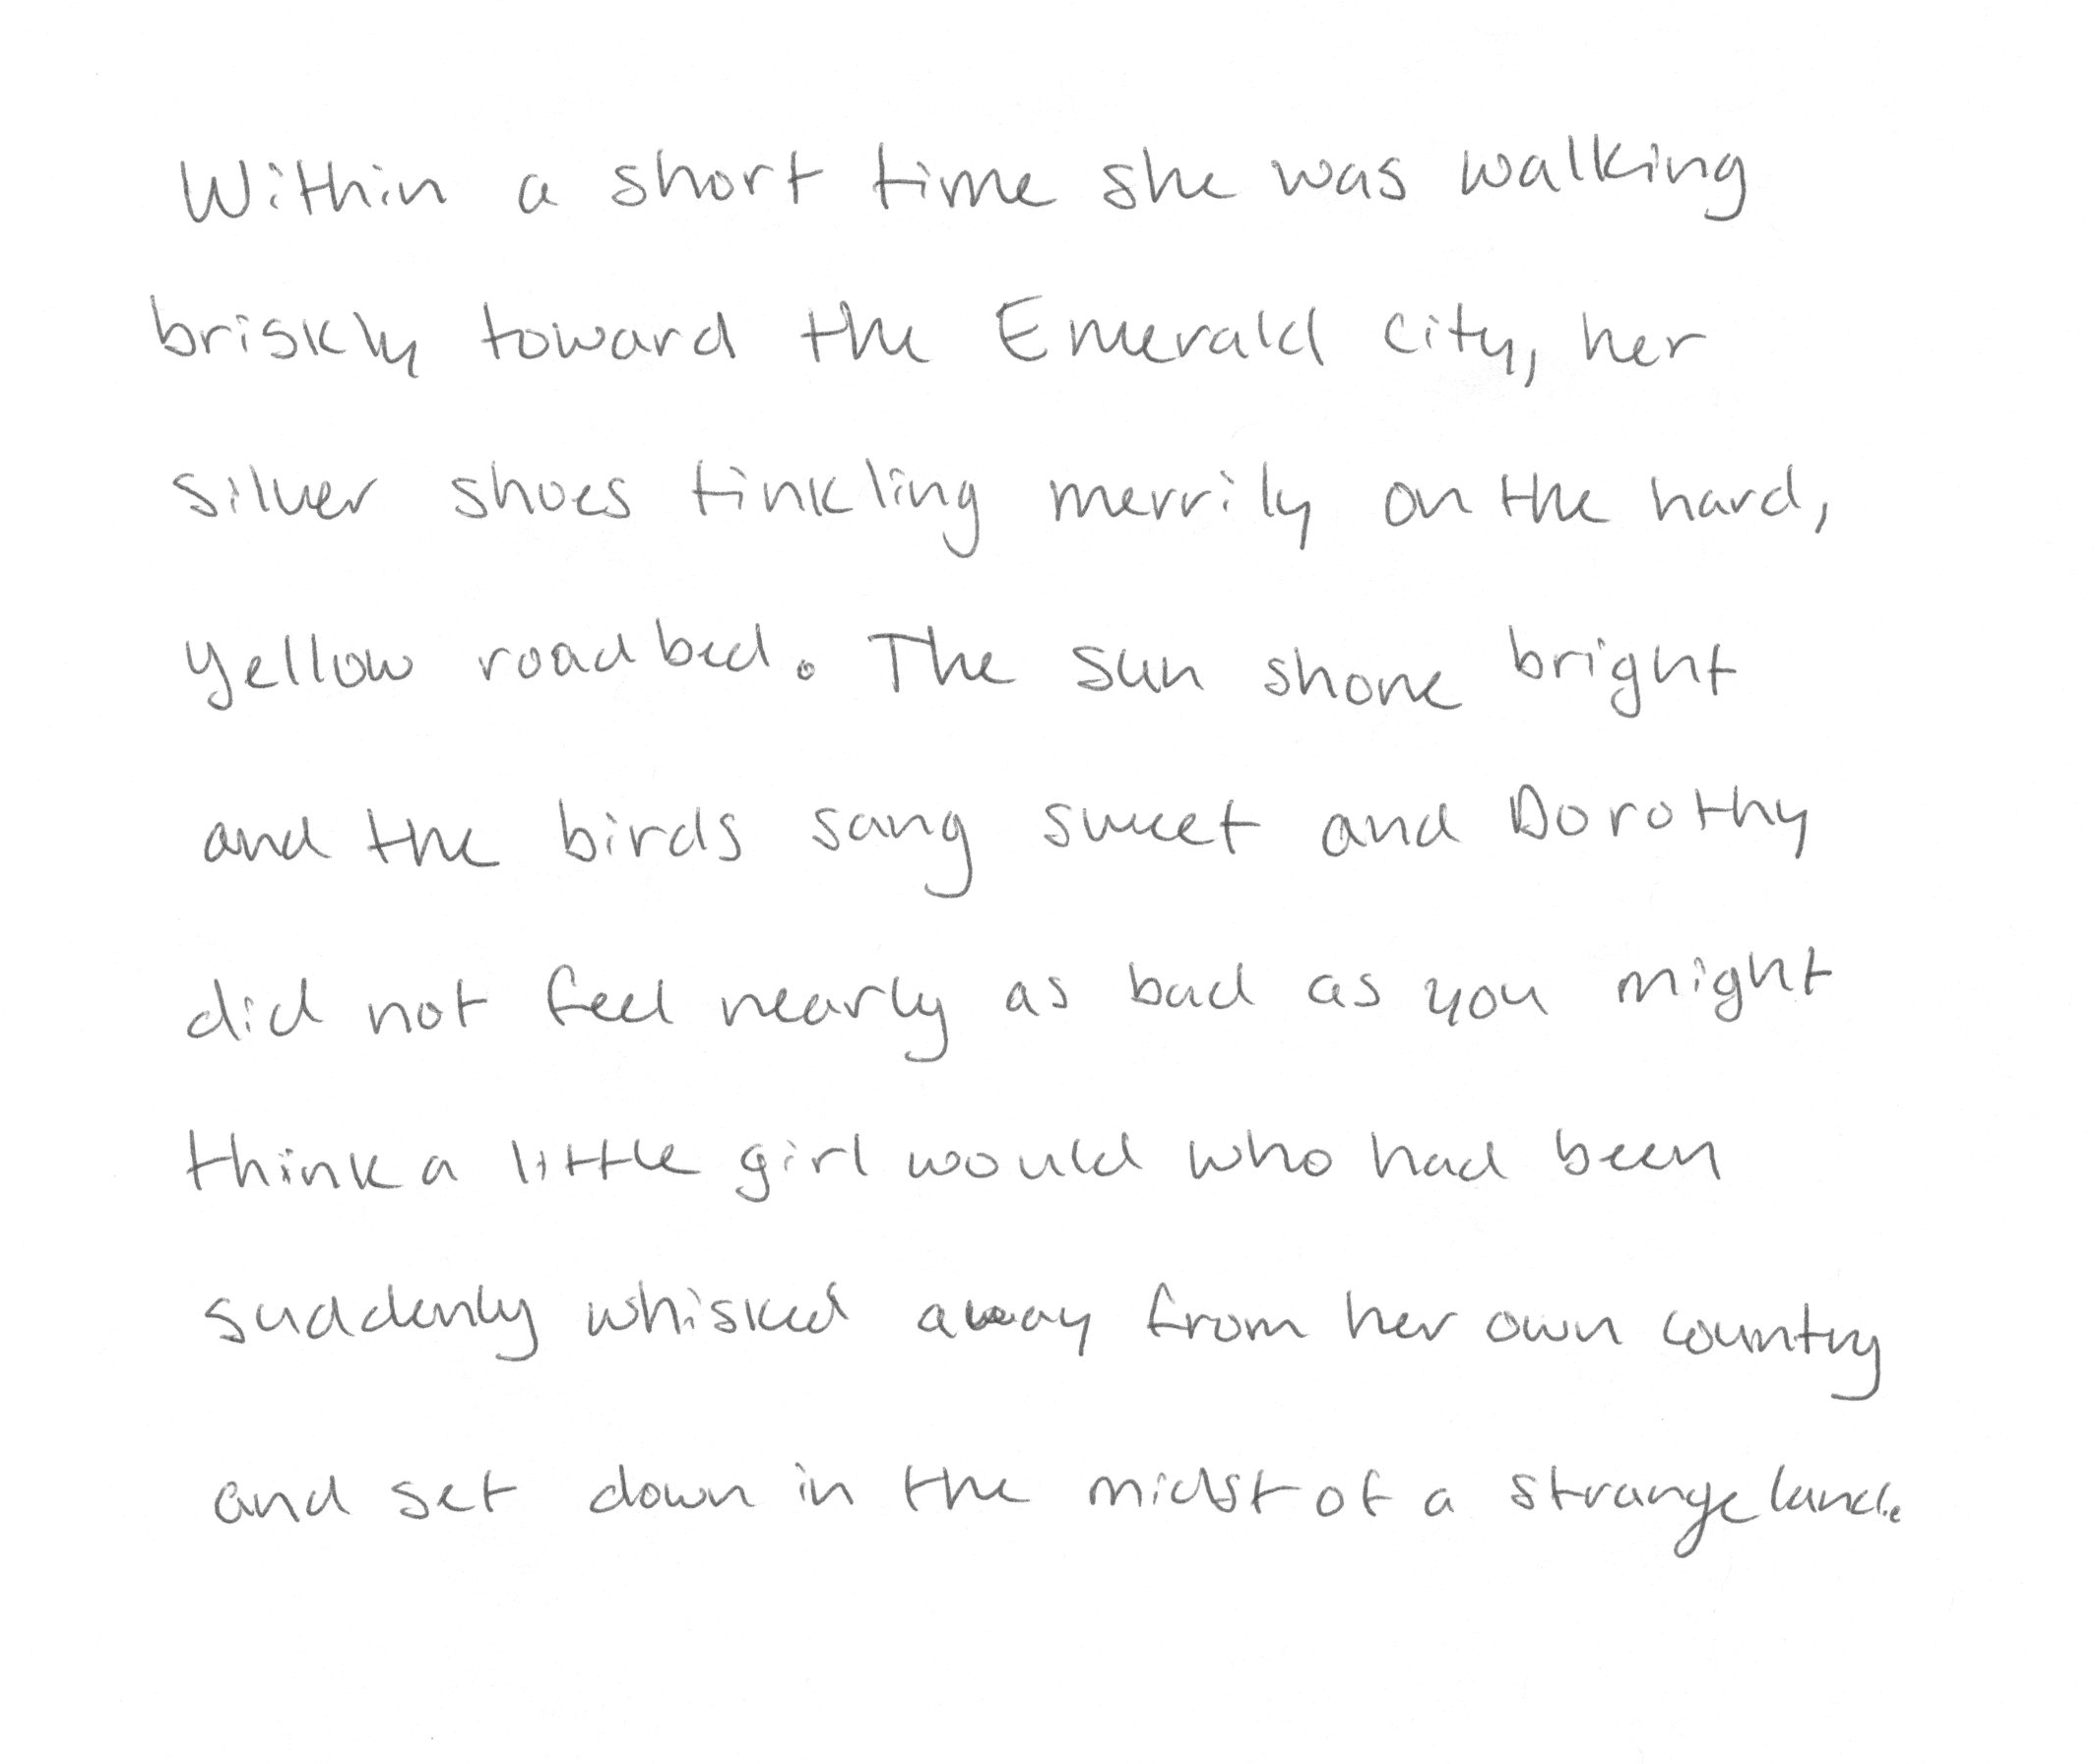 Within a short time she was walking
briskly toward the Emerald City, her
silver shoes tinkling merrily on the hard,
yellow roadbed. The sun shone bright
and the birds sang sweet and Dorothy
did not feel nearly as bad as you might
think a little girl would who had been
suddenly whisked away from her own country
and set down in the midst of a strange land.